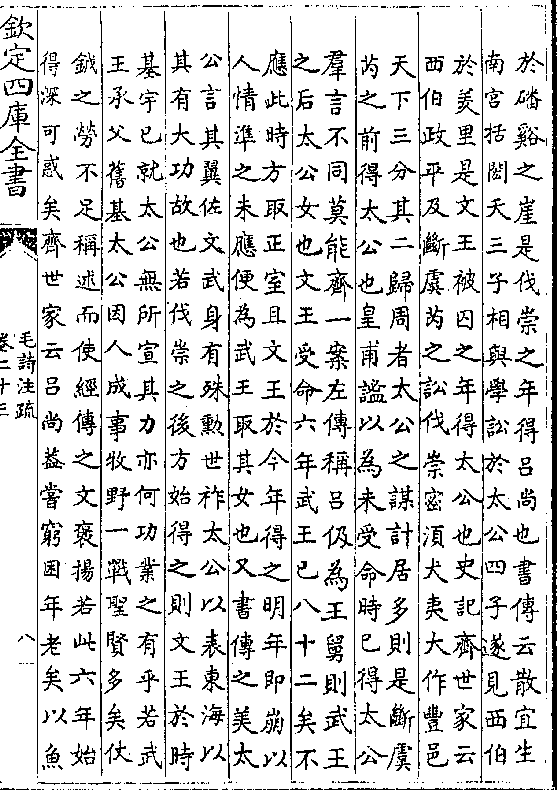 於磻谿之崖是伐崇之年得呂尚也書傳云散宜生
南宮括閎夭三子相與學訟於太公四子遂見西伯
於羑里是文王被囚之年得太公也史記齊世家云
西伯政平及斷虞芮之訟伐崇宻湏犬夷大作豐邑
天下三分其二歸周者太公之謀計居多則是斷虞
芮之前得太公也皇甫謐以為未受命時已得太公
羣言不同莫能齊一案左傳稱呂伋為王舅則武王
之后太公女也文王受命六年武王已八十二矣不
應此時方取正室且文王於今年得之明年即崩以
人情準之未應便為武王取其女也又書傳之美太
公言其翼佐文武身有殊勲世祚太公以表東海以
其有大功故也若伐崇之後方始得之則文王於時
基宇已就太公無所宣其力亦何功業之有乎若武
王承父舊基太公因人成事牧野一戰聖賢多矣仗
鉞之勞不足稱述而使經傳之文褒揚若此六年始
得深可惑矣齊世家云呂尚葢嘗窮困年老矣以魚
欽定四庫全書
毛詩注疏
卷二十三
八